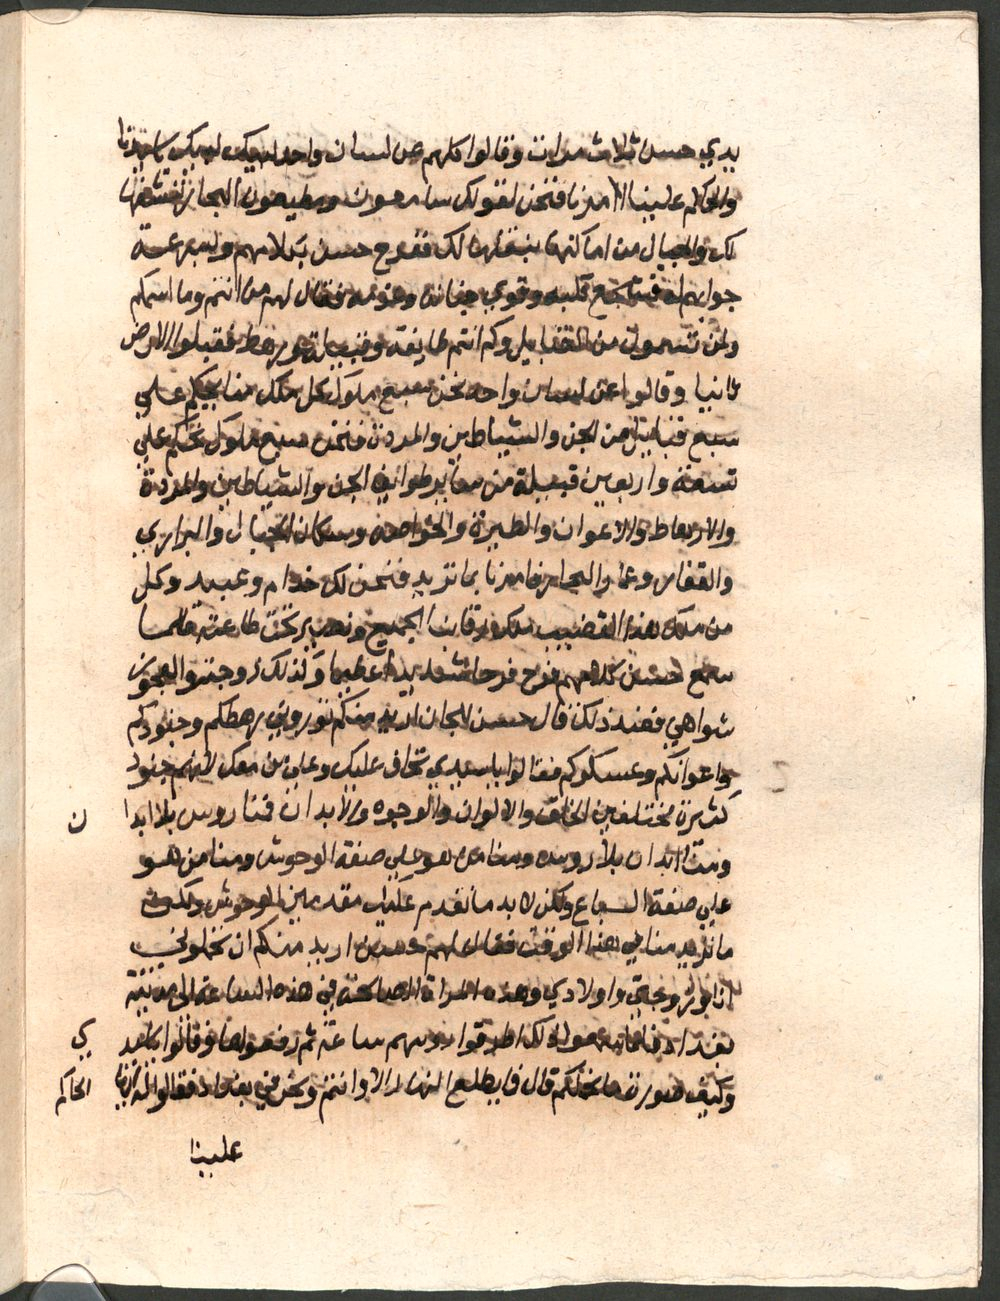 يدي حسن ثلاث مرات وقالوا كلهم عن لسان واحد لبيك لبيك يا سيدنا
والحاكم علينا امرنا فنحن لقولك سامعون ومطيعون البحار ننشفها
لك والجبال من اماكنها ننقلها لك ففرح حسن بكلامهم وبسرعة
جوابهم له فتشجع قلبه وقوي جنانه وعزمه فقال لهم من انتم وما اسمكم
ولمن تنسبون من القبايل وكم انتم طايفة وقبيلة ورهط فقبلوا الارض
ثانيا وقالوا عن لسان واحد نحن سبع ملوك كل ملك منا يحكم على
سبع قبايل من الجن والشياطين والمردة فنحن سبع ملوك نحكم علي
تسعة واربعين قبيلة من ساير طوايف الجن والشياطين والمردة
والارهاط والاعوان والطيرة والغواصة وسكان الجبال والبراري
والقفار وعمار البحار فامرنا بما تريد فنحن لك خدام وعبيد وكل
من ملك هذا القضيب ملك رقابنا الجميع ونصير تحت طاعته فلما
سمع حسن كلامهم فرح فرحا شديدا عظيما وكذلك زوجته والعجوز
شواهي فعند ذلك قال حسن للجان اريد منكم تورويني رهطكم وجنودكم
واعوانكم وعسكركم فقالوا يا سيدي نخاف عليك وعلي من معك لانهم جنود
كثيرة مختلفين الخلق والالوان والوجوه والابدان فمنا روس بلا ابدا ن
ومنا ابدان بلا روس ومنا من هو علي صفة الوحوش ومنا من هو
علي صفة السباع ولكن لا بد ما نقدم عليك مقدمين الوحوش ولكن
ما تريد منا في هذا الوقت فقال لهم حسن اريد منكم ان تحملوني
انا وزوجتي واولادي وهذه المراة الصالحة في هذه الساعة الي مدينة
بغداد فلما سمعوا ذلك اطرقوا روسهم ساعة ثم رفعوها وقالوا يا سيد ي
وكيف صورة ما نحملكم قال فا يطلع النهار الا وانتم ونحن في بغداد فقالوا له ايها الحاكم
علينا